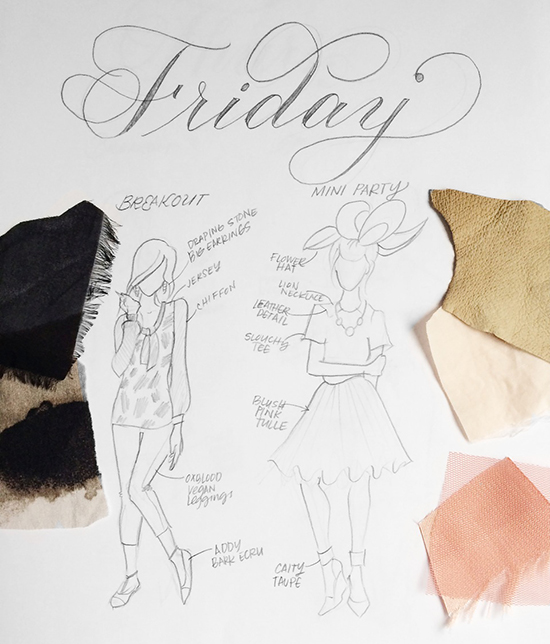 Friday
BREAKOUT
DRAPING STONE
BIG EARRINGS
JERSEY
CHIFFON
OXBLOOD
VEGAN
leggings
ADDY
BARK ECRU
MINI PARTY
FLOWER
HAT
LION
NECKLACE
LEATHER
DETAIL
SLOUCHY
TEE
BLUSH
PINK
TULLE
CAITY
TAUPE